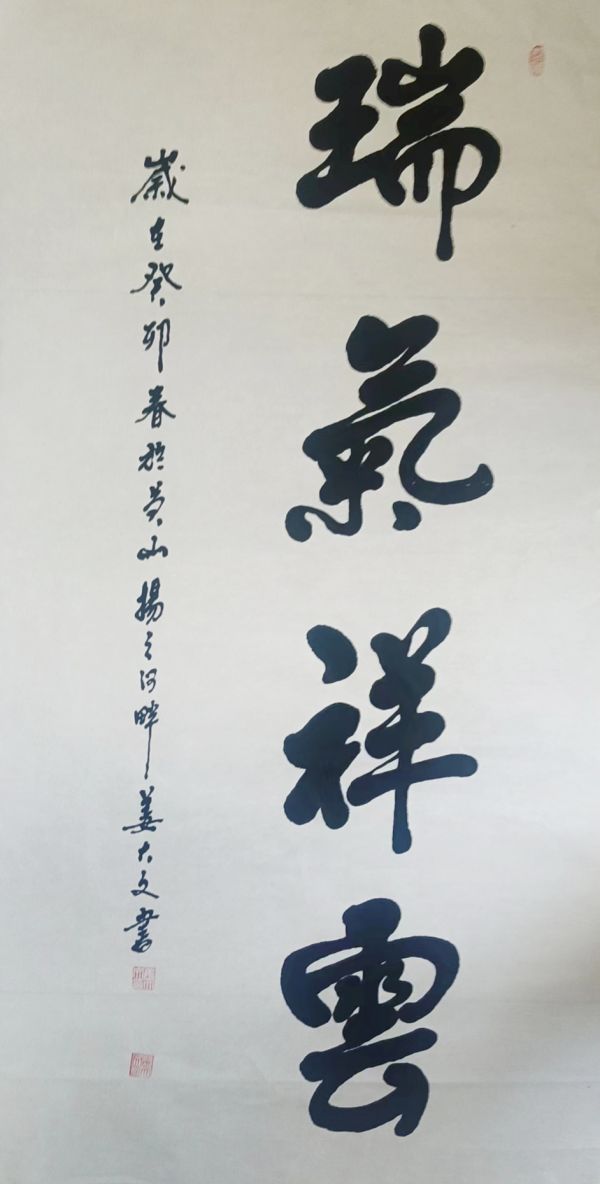 瑞氣祥雲
歲在癸卯春於黄山揚之河畔姜大文書